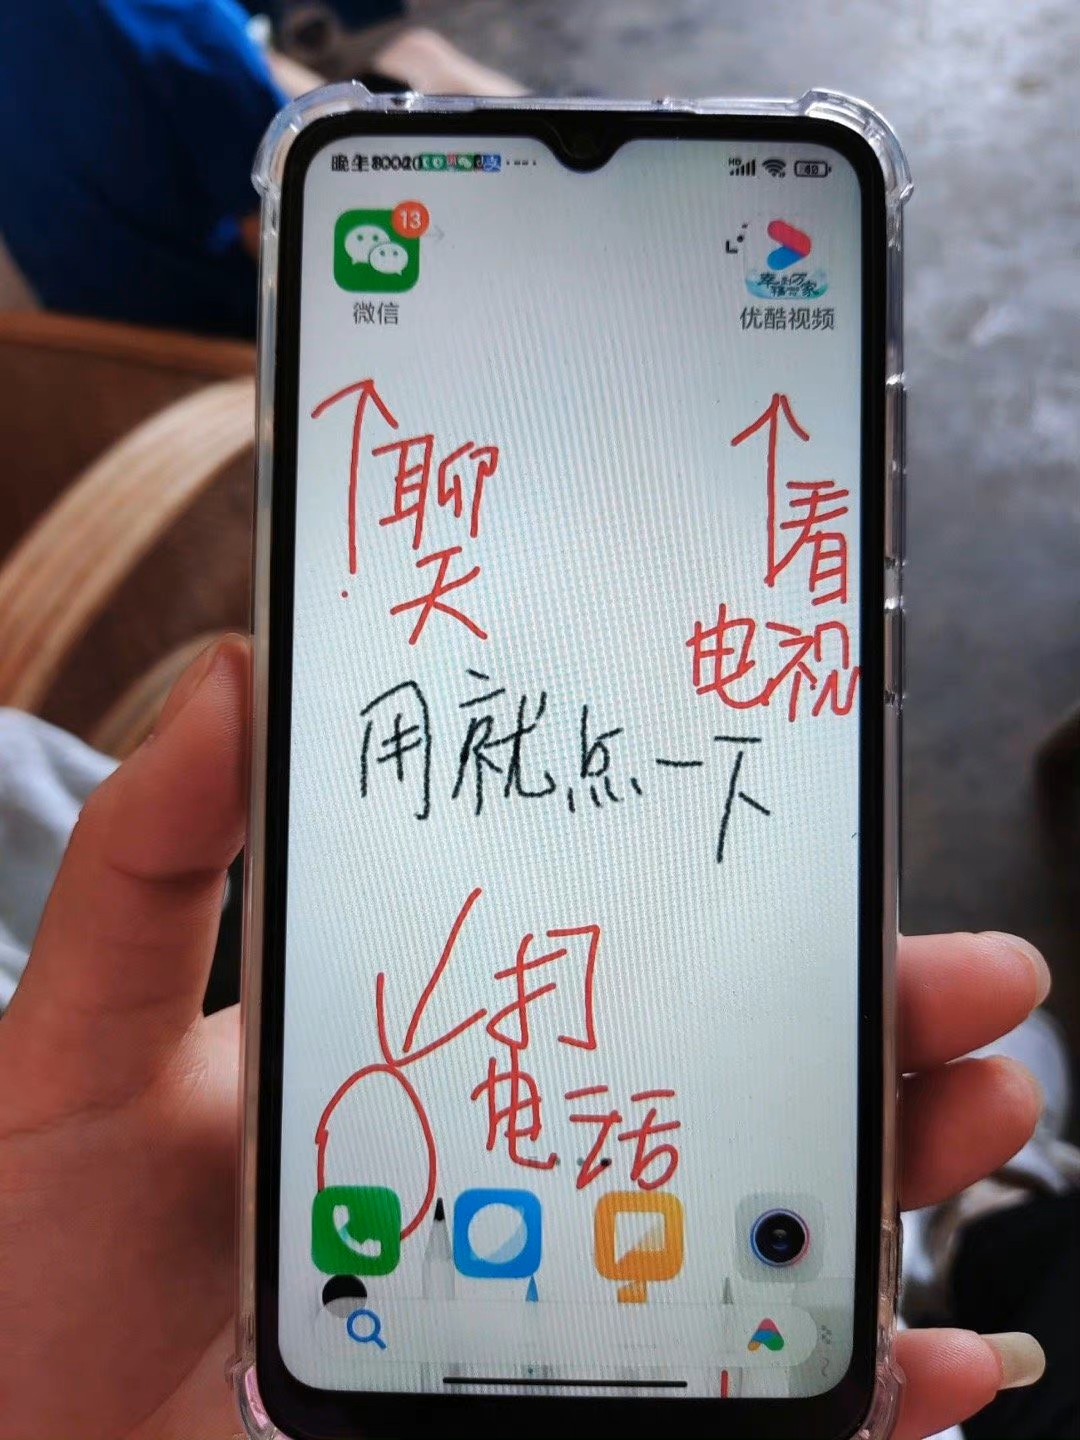 13
HD
40
微信
优酷视频
聊
天
看
电视
用就点一下
打
电话